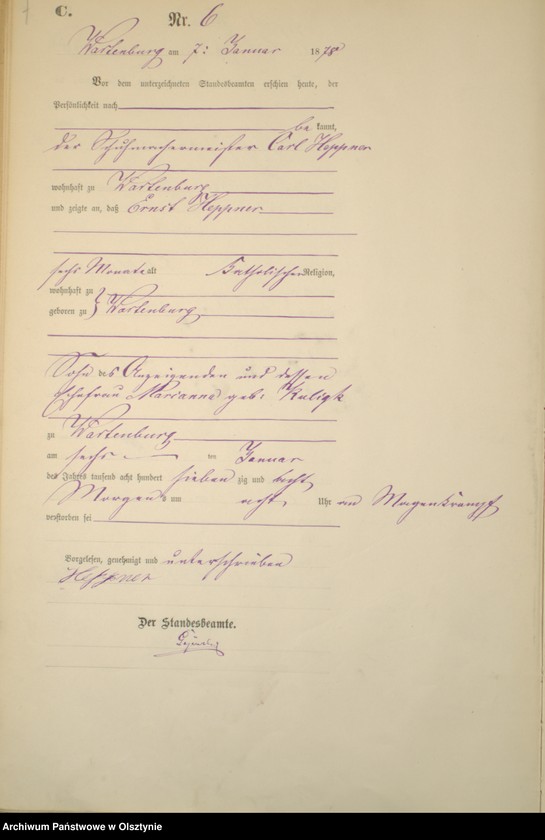 C.
Nr. 6
Wartenburg am 7: Januar 1878
Vor dem unterzeichneten Standesbeamten erschien heute, der
Persönlichkeit nach
be kannt,
der Schuhmachermeister Carl Heppner
wohnhaft zu Wartenburg
und zeigte an, daß Ernst Heppner
sechs Monate alt Katholischer Religion,
wohnhaft zu
geboren zu } Wartenburg
Sohn des Anzeigenden und dessen
Ehefrau Marianne geb: Kuligk
zu Wartenburg
am sechs ten Januar
des Jahres tausend acht hundert sieben zig und acht,
Morgens um acht Uhr an Magenkrampf
verstorben sei
Vorgelesen, genehmigt und unterschrieben
Heppner
Der Standesbeamte.
Archiwum Państwowe w Olsztynie